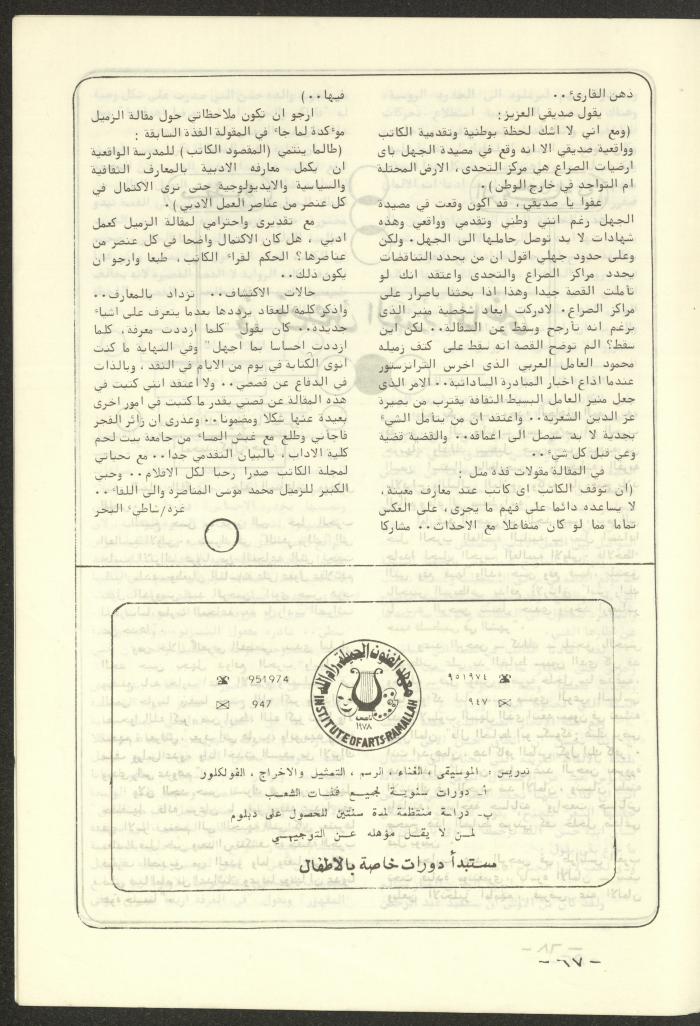 ذهن القارىء ٠٠
يقول صديقي العزيز:
(ومع اني لا اشك لحظة بوطنية وتقدمية الكاتب
وواقعية صديقي الا انه وقع في مصيدة الجهل باى
ارضيات الصراع هي مركز التحدى، الارض المحتلة
ام التواجد في خارج الوطن) ٠
عفوا يا صديقي، قد اكون وقعت في مصيدة
الجهل رغم انني وطني وتقدمي وواقعي وهذه
شهادات لا بد توصل حاملها الى الجهل ٠ ولكن
وعلى حدود جهلي اقول ان من يحدد التناقضات
يحدد مراكز الصراع والتحدى واعتقد انك لو
تأملت القصة جيدا وهذا اذا بحثنا باصرار على
مراكز الصراع، لادركت ابعاد شخصية منير الذى
برغم انه تأرجح وسقط عن السقالة ٠٠ لكن اين
سقط؟ الم توضح القصة انه سقط على كتف زميله
محمود العامل العربي الذى اخرس الترانزستور
عندما اذاع اخبار المبادرة الساداتية ٠٠ الامر الذى
جعل منير العامل البسيط الثقافة يقترب من بصيرة
عز الدين الشعرية ٠٠ واعتقد ان من يتأمل الشيء
بجدية لا بد سيصل الى اعماقه ٠٠ والقضية قضية
وعي قبل كل شيء ٠٠
في المقالة مقولات فذة مثل :
(ان توقف الكاتب اى كاتب عند معارف معينة،
لا يساعده دائما على فهم ما يجرى، على العكس
تماما مما لو كان متفاعلا مع الاحداث ٠٠ مشاركا
فيها ٠٠)
ارجو ان تكون ملاحظاتي حول مقالة الزميل
موءكدة لما جاء في المقولة الفذة السابقة :
(طالما ينتمي (المقصود الكاتب) للمدرسة الواقعية
ان يكمل معارفه الادبية بالمعارف الثقافية
والسياسية والايديولوجية حتى نرى الاكتمال في
كل عنصر من عناصر العمل الادبي) ٠
مع تقديرى واحترامي لمقالة الزميل كعمل
ادبي، هل كان الاكتمال واضحا في كل عنصر من
عناصرها؟ الحكم لقراء الكاتب، طبعا وارجو ان
يكون ذلك ٠٠
حالات الاكتشاف ٠٠ تزداد بالمعارف ٠٠
واذكر كلمة للعقاد يرددها بعدما يتعرف على اشياء
جديدة ٠٠ كان يقول "كلما ازددت معرفة، كلما
ازددت احساسا بما اجهل" وفي النهاية ما كنت
انوى الكتابة في يوم من الايام في النقد، وبالذات
في الدفاع عن قصصي ٠٠ ولا أعتقد انني كتبت في
هذه المقالة عن قصتي بقدر ما كتبت في امور اخرى
بعيدة عنها شكلا ومضمونا ٠٠ وعذرى ان زائر الفجر
فاجأني وطلع مع غبش المساء من جامعة بيت لحم
كلية الاداب، بالبيان النقدمي جدا ٠٠ مع تحياتي
لمجلة الكاتب صدرا رحبا لكل الاقلام ٠٠ وحبي
الكبير للزميل محمد موسى المناصرة والى اللقاء ٠٠
غزة/شاطىء البحر
معهد الفنون الجميلة رام الله
INSTITUTE OF ARTS-RAMALLAH
١٩٧٨
٩٥١٩٧٤
951974
٩٤٧
947
تدريس : الموسيقى، الغناء، الرسم، التمثيل والاخراج، الفولكلور
أ- دورات سنوية لجميع فئات الشعب
ب- دراسة منتظمة لمدة سنتين للحصول على دبلوم
لمن لا يقل مؤهله عن التوجيهي
ستبدأ دورات خاصة بالاطفال
- ٦٧ -